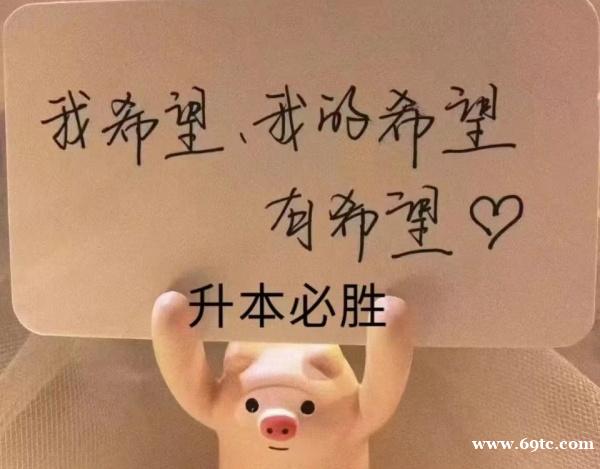 我希望、我的希望
有希望♡
升本必胜
www.69tc.com